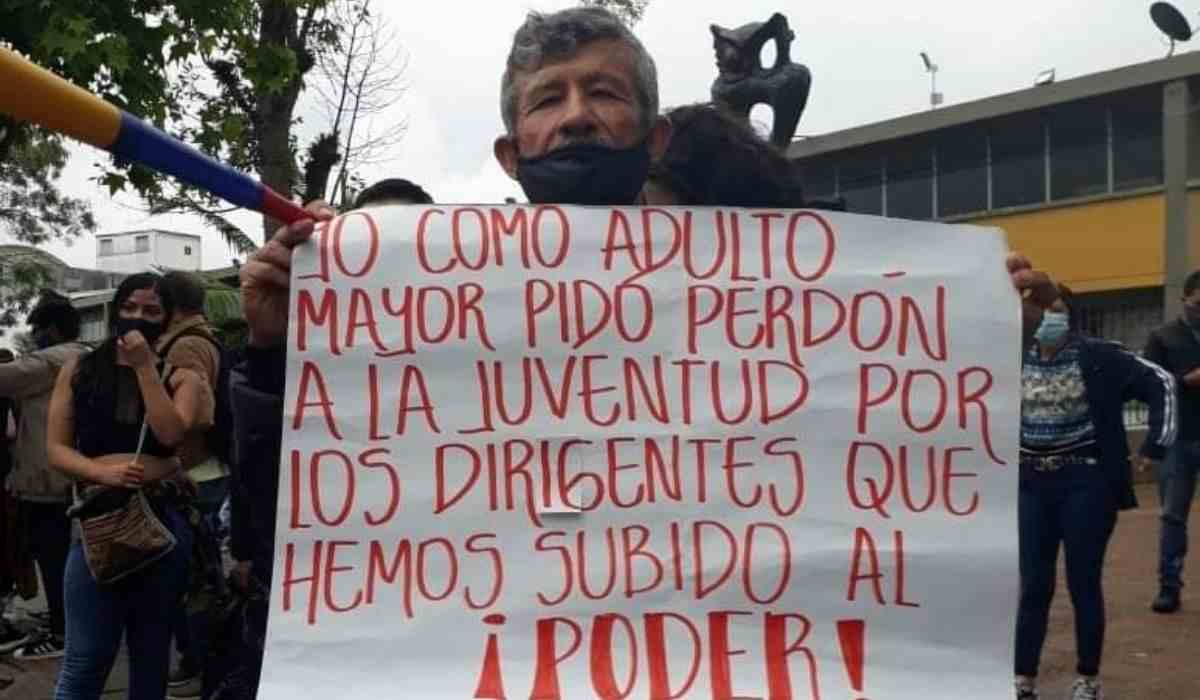 YO COMO ADULTO
MAYOR PIDO PERDÓN
A LA JUVENTUD POR
LOS DIRIGENTES QUE
HEMOS SUBIDO AL
¡PODER!